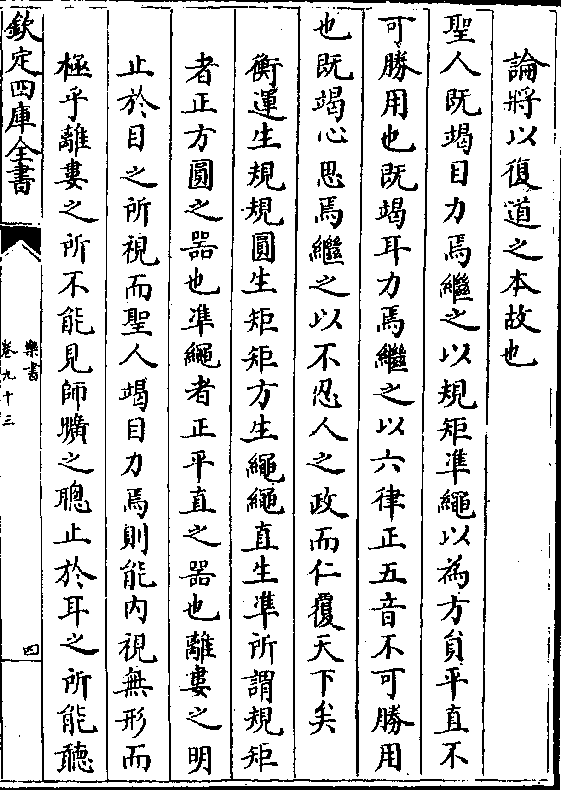 論將以復道之本故也
聖人既竭目力焉繼之以規矩凖繩以為方員平直不
可勝用也既竭耳力焉繼之以六律正五音不可勝用
也既竭心思焉繼之以不忍人之政而仁覆天下矣
衡運生規規圓生矩矩方生繩繩直生凖所謂規矩
者正方圓之器也凖繩者正平直之器也離婁之明
止於目之所視而聖人竭目力焉則能内視無形而
極乎離婁之所不能見師曠之聰止於耳之所能聽
欽定四庫全書
樂書
卷九十三
四